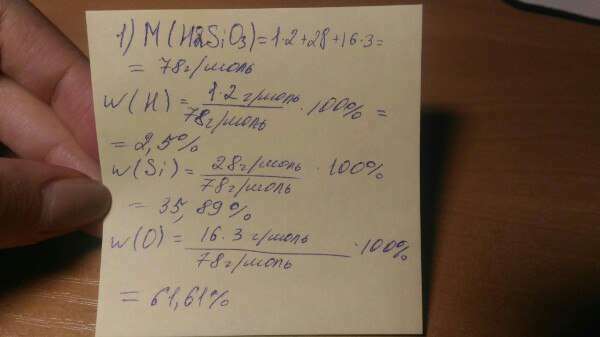 1) M(H2SiO3)=1·2+28+16·3=
= 78г/моль
w(H) = 1·2 г/моль / 78г/моль · 100% =
= 2,5%
w(Si) = 28г/моль / 78г/моль · 100%
= 35,89%
w(O) = 16·3 г/моль / 78г/моль · 100%
= 61,61%